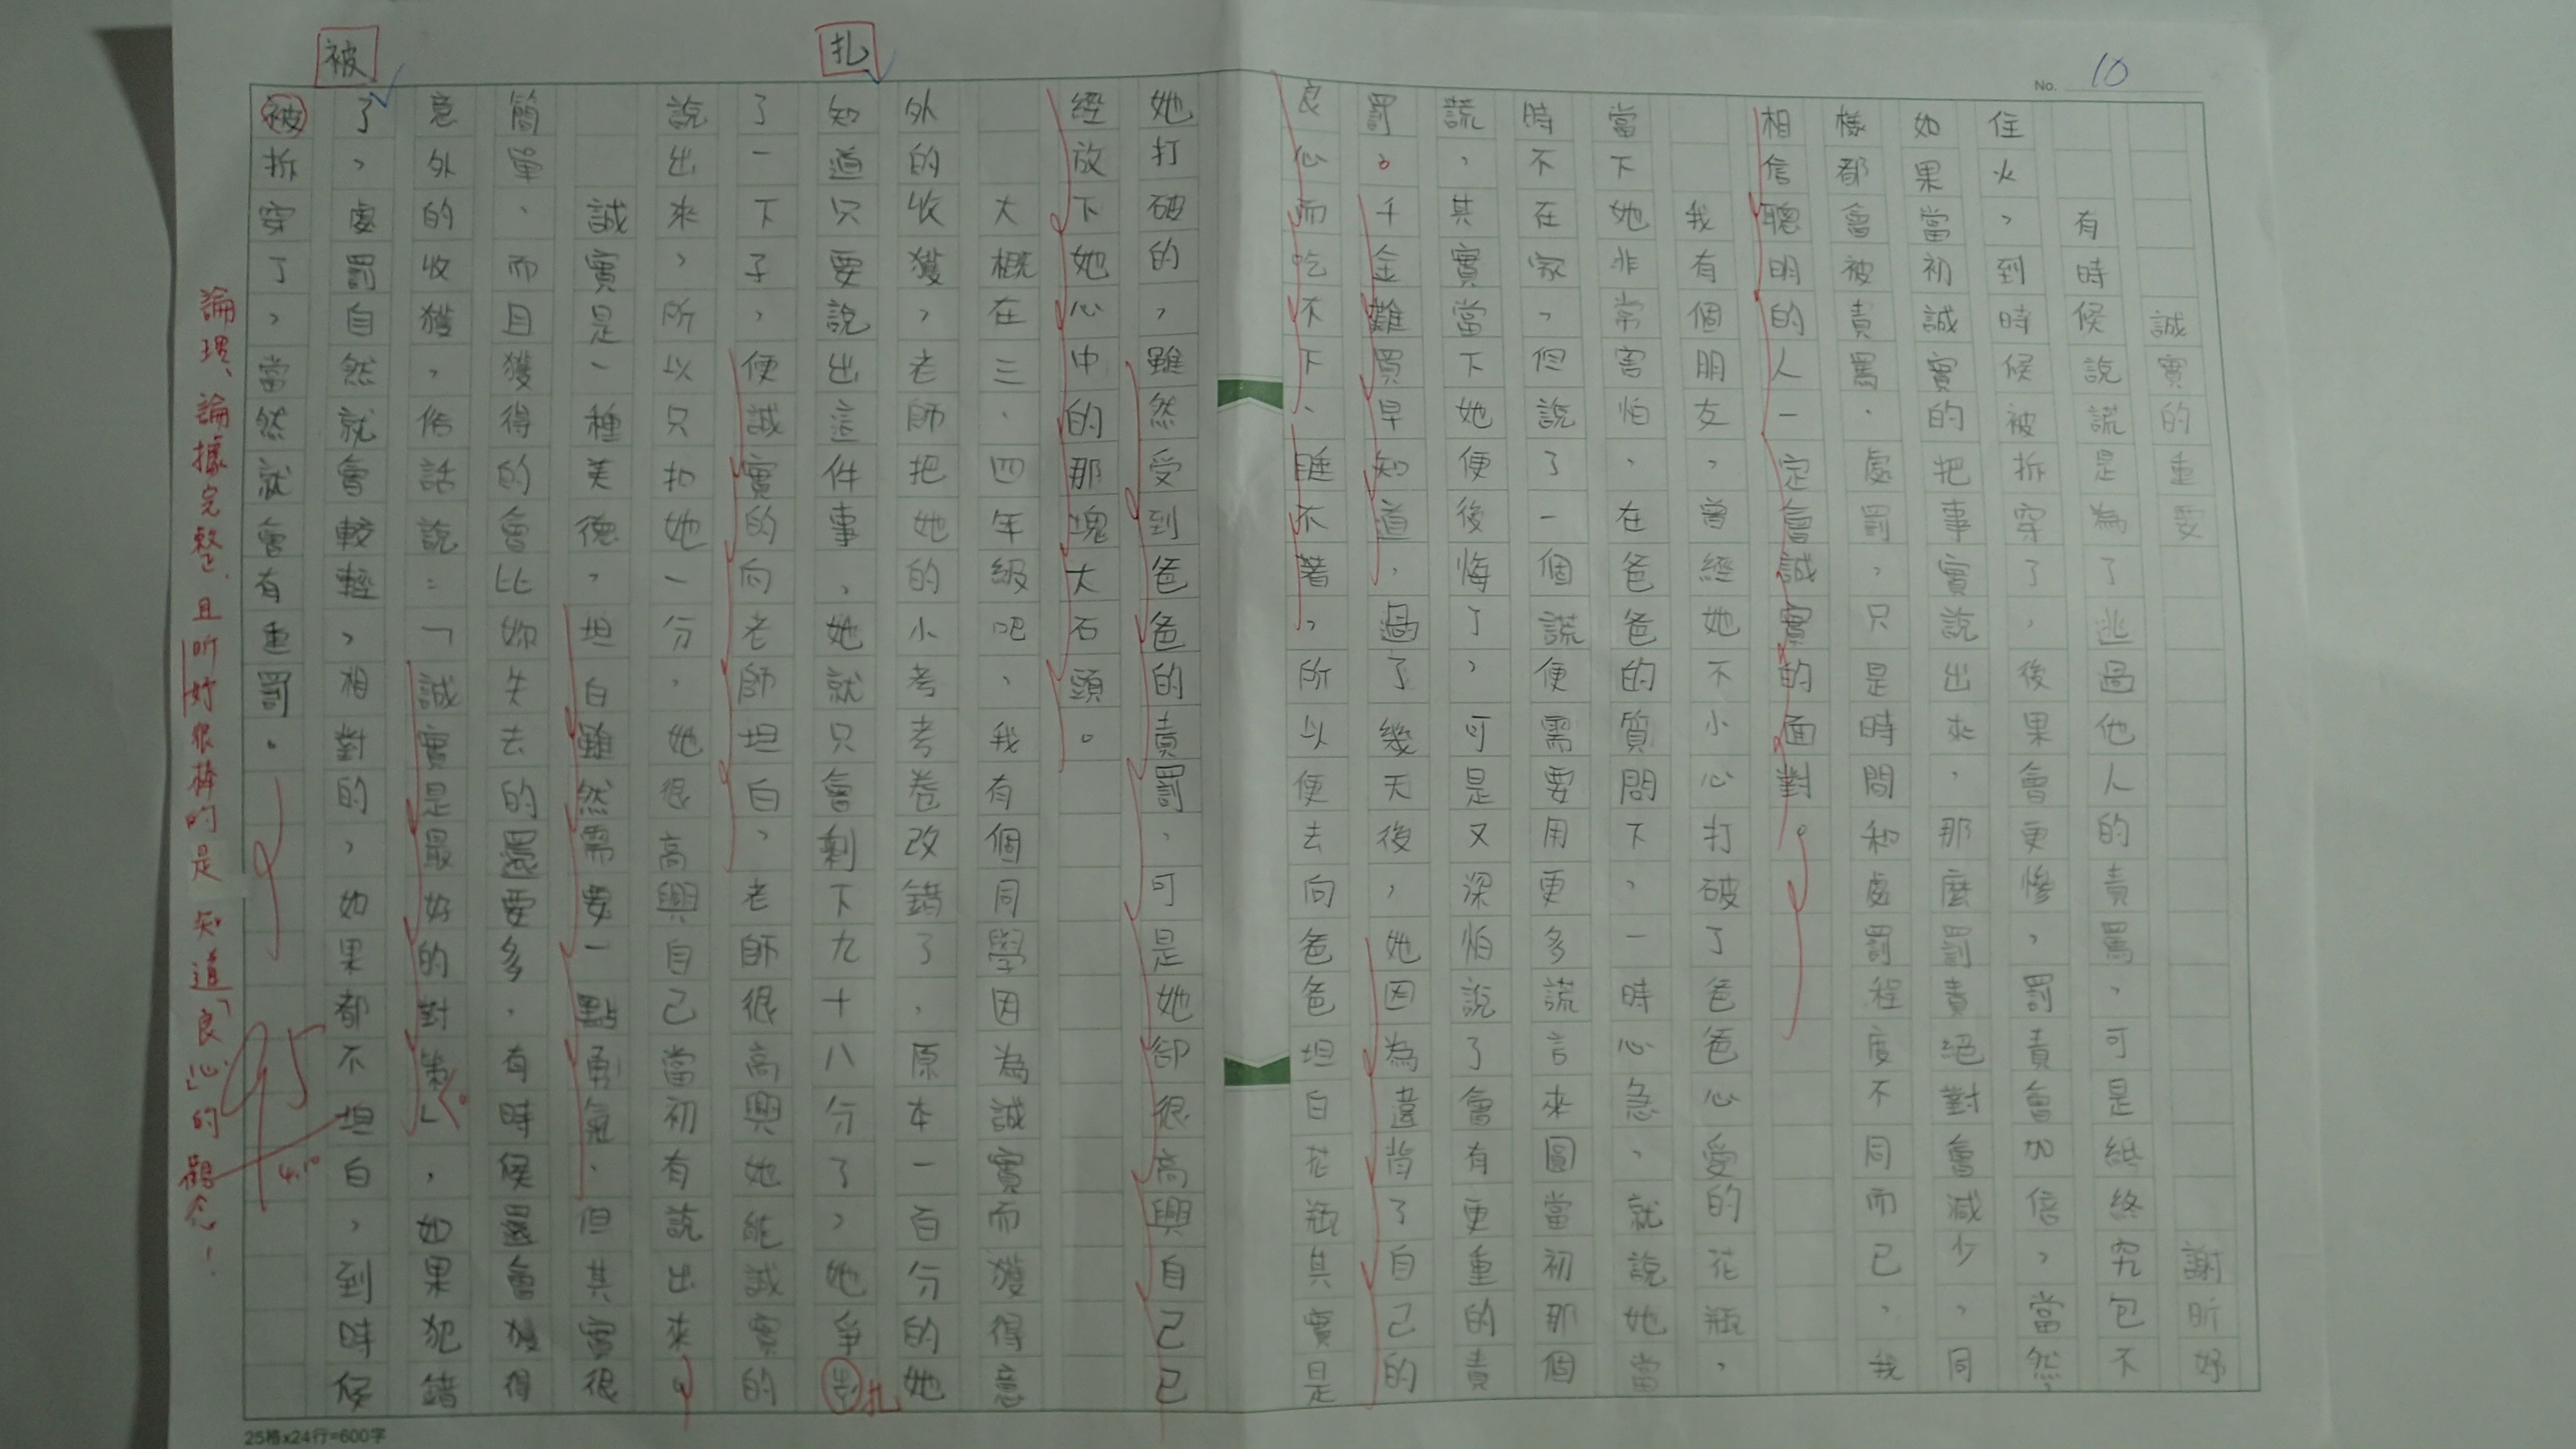 No. 10
誠實的重要
謝昕妤
有時候說謊是為了逃過他人的責罵,可是紙終究包不
住火,到時候被拆穿了,後果會更慘,罰責會加倍,當然,
如果當初誠實的把事實說出來,那麼罰責絕對會減少,同
樣都會被責罵、處罰,只是時間和處罰程度不同而已,我
相信聰明的人一定會誠實的面對。
我有個朋友,曾經她不小心打破了爸爸心愛的花瓶,
當下她非常害怕,在爸爸的質問下,一時心急,就說她當
時不在家,但說了一個謊便需要用更多謊言來圓當初那個
謊,其實當下她便後悔了,可是又深怕說了會有更重的責
罰。千金難買早知道,過了幾天後,她因為違背了自己的
良心而吃不下、睡不著,所以便去向爸爸坦白花瓶其實是
她打破的,雖然受到爸爸的責罰,可是她卻很高興自己已
經放下她心中的那塊大石頭。
大概在三、四年級吧,我有個同學因為誠實而獲得意
外的收獲,老師把她的小考考卷改錯了,原本一百分的她
知道只要說出這件事,她就只會剩下九十八分了,她爭扎
了一下子,便誠實的向老師坦白,老師很高興她能誠實的
說出來,所以只扣她一分,她很高興自己當初有說出來。
誠實是一種美德,坦白雖然需要一點勇氣,但其實很
簡單、而且獲得的會比妳失去的還要多,有時候還會獲得
意外的收獲,俗話說:「誠實是最好的對策」。,如果犯錯
了,處罰自然就會較輕,相對的,如果都不坦白,到時候
被拆穿了,當然就會有重罰。
扎
被
論理、論據完整,且昕妤很棒的是知道「良心」的觀念!
95
4.10
25格x24行=600字